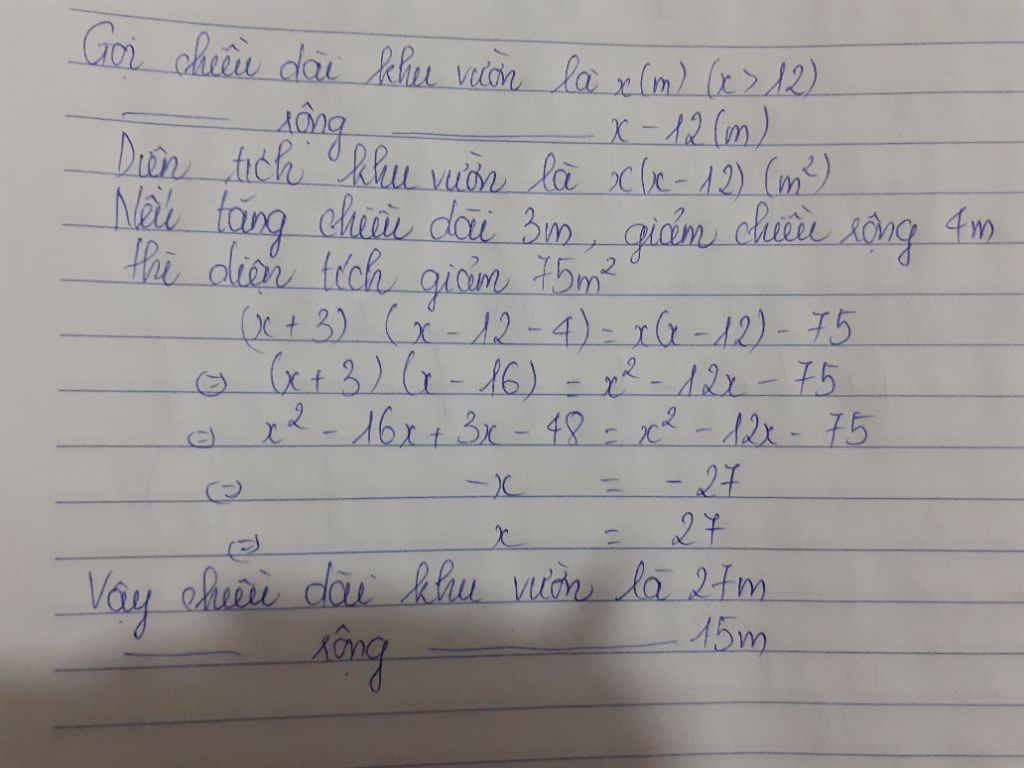 Gọi chiều dài khu vườn là x(m) (x > 12)
—— rộng ———— x - 12(m)
Diện tích khu vườn là x(x - 12) (m²)
Nếu tăng chiều dài 3m, giảm chiều rộng 4m
thì diện tích giảm 75m²
(x + 3) (x - 12 - 4) = x(x - 12) - 75
⇔ (x + 3) (x - 16) = x² - 12x - 75
⇔ x² - 16x + 3x - 48 = x² - 12x - 75
⇔ -x = -27
⇔ x = 27
Vậy chiều dài khu vườn là 27m
—— rộng ———— 15m